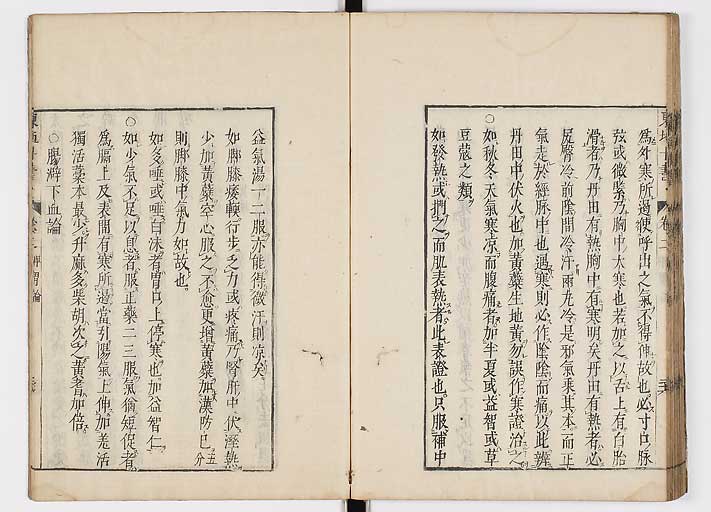 為外寒所遏使呼出之氣不得伸故也必寸口脉
弦或微緊乃胸中大寒也若加之以舌上有白胎
滑者乃丹田有熱胸中有寒明矣丹田有熱者必
尻臀冷前陰間冷汗兩丸冷是邪氣乘其本而正
氣走於經脉中也遇寒則必作陰陰而痛以此辨
丹田中伏火也加黃蘗生地黃勿誤作寒證治之
○如秋冬天氣寒凉而腹痛者加半夏或益智或草
豆蔻之類
如發熱或捫之而肌表熱者此表證也只服補中
益氣湯一二服亦能得微汗則凉矣
如脚膝痿軟行步乏力或疼痛乃腎肝中伏溼熱
少加黃蘗空心服之不愈更增黃蘗加漢防已五分
則脚膝中氣力如故也
如多唾或唾白沫者胃口上停寒也加益智仁
○如少氣不足以息者服正藥二三服氣猶短促者
為膈上及表間有寒所遏當引陽氣上伸加羌活
獨活藁本最少升麻多柴胡次之黃耆加倍
○腸澼下血論
東垣十書
卷二
脾胃論